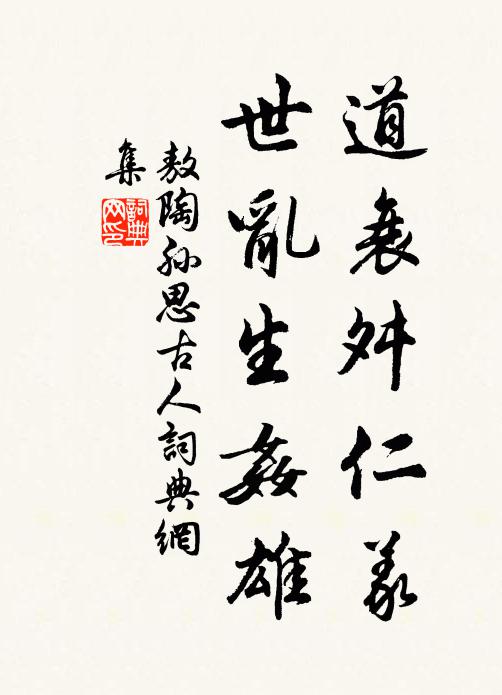 道衰舛仁義
世亂生姦雄
敖陶孫思古人詞典網
集
詞典
网印